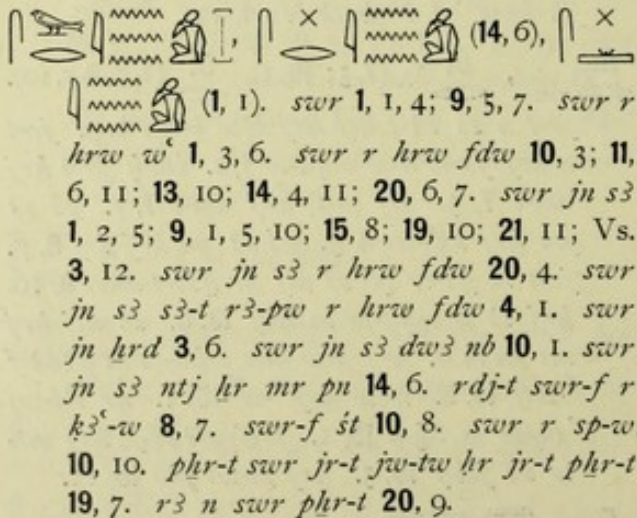 , (14, 6),
(1, 1). swr 1, 1, 4; 9, 5, 7. swr r
hrw wꜥ 1, 3, 6. swr r hrw fdw 10, 3; 11,
6, 11; 13, 10; 14, 4, 11; 20, 6, 7. swr jn sꜣ
1, 2, 5; 9, 1, 5, 10; 15, 8; 19, 10; 21, 11; Vs.
3, 12. swr jn sꜣ r hrw fdw 20, 4. swr
jn sꜣ sꜣ-t rꜣ-pw r hrw fdw 4, 1. swr
jn ẖrd 3, 6. swr jn sꜣ dwꜣ nb 10, 1. swr
jn sꜣ ntj ẖr mr pn 14, 6. rdj-t swr-f r
ḳꜣꜥ-w 8, 7. swr-f śt 10, 8. swr r sp-w
10, 10. pẖr-t swr jr-t jw-tw ḥr jr-t pẖr-t
19, 7. rꜣ n swr pẖr-t 20, 9.